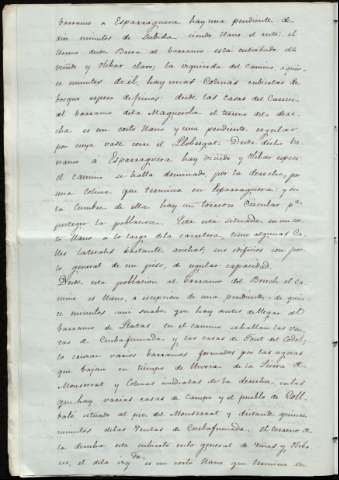 barranco a Esparraguera hay una pendiente de
minutos de subida siendo llano el resto. el
terreno desde Breda al barranco está cultivado de
viñedo y Olibar claro, la izquierda del camino a quin-
ce minutos de él, hay unas Colinas cubiertas de
bosque espeso de pinos: desde las casas del Carrer
al barranco de la Magnerola el terreno de la dere-
cha es un corto llano y una pendiente regular
por cuyo valle corre el Llobregat. Desde dicho ba-
rranco a Esparraguera hay viñedo y Olibar espeso
el camino se halla dominado, por la derecha, por
una colina que termina en Esparraguera, y en
la cumbre de ella hay un torreon Circular pª
proteger la poblacion. Esta está situada en un cor-
to llano a lo largo de la carretera, tiene algunas Ca-
lles laterales bastante anchas, sus edificios son por
lo general de un piso, de regular capacidad.
Desde esta poblacion al barranco del Bruch el ca-
mino es llano, a escepcion de una pendiente de quin-
ce minutos mui suabe que hay antes de llegar al
barranco de Platas. en el camino se hallan las Ven-
tas de Casbafumada y las casas de Pont del Codol,
lo cortan varios barrancos formados por las aguas
que bajan en tiempo de lluvia de la Sierra de
Monserrat y Colinas inmediatas de la derecha, en las
que hay varias casas de Campo y el pueblo de Coll-
bató situado al pie del Monserrat y distante quince
minutos de las Ventas de Casbafumada. El terreno de
la derecha está cubierto en lo general de viñas y Oliba-
res, el de la izqda es un corto llano que termina en